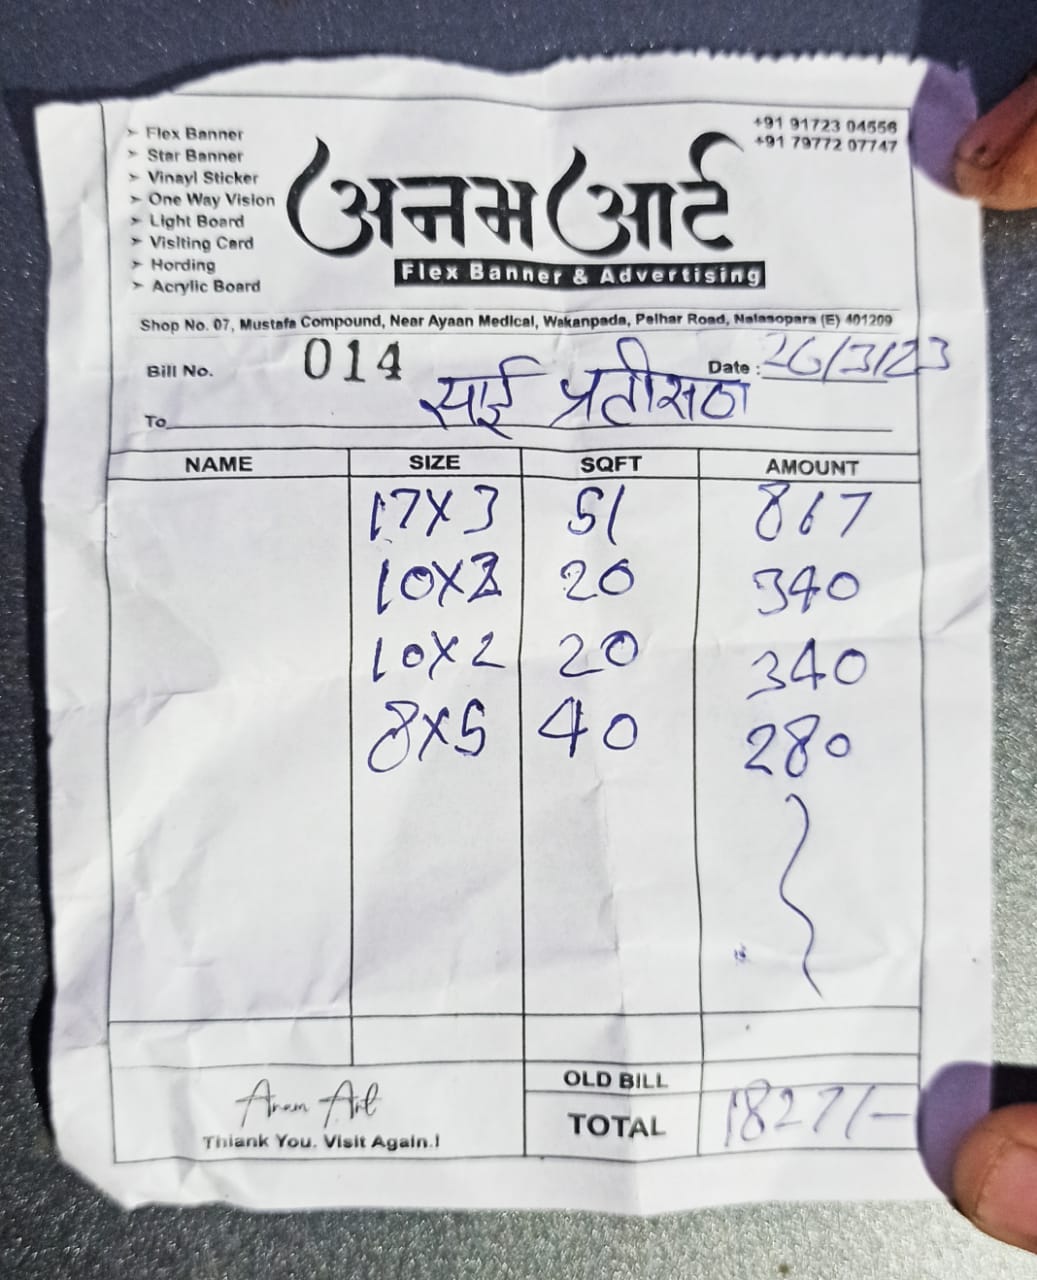 ➢ Flex Banner
➢ Star Banner
➢ Vinayl Sticker
➢ One Way Vision
➢ Light Board
➢ Visiting Card
➢ Hording
➢ Acrylic Board
+91 91723 04556
+91 79772 07747
अनम आर्ट
Flex Banner & Advertising
Shop No. 07, Mustafa Compound, Near Ayaan Medical, Wakanpada, Pelhar Road, Nalasopara (E) 401209
Bill No. 014 Date : 26/3/23
To साई प्रतीसठा
NAME SIZE SQFT AMOUNT
17X3 51 867
10X2 20 340
10X2 20 340
8X5 40 280
OLD BILL
TOTAL 1827/-
Anam Art
Thiank You. Visit Again.!